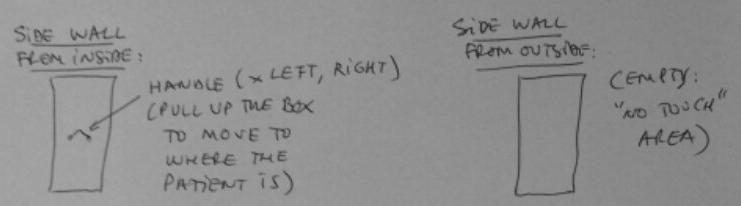 SiDE WALL
FROM iNSiDE:
HANDLE (x LEFT, RiGHT)
(PULL UP THE BOX
TO MOVE TO
WHERE THE
PATiENT iS)
SiDE WALL
FROM OUTSiDE:
(EMPTY:
"NO TOUCH"
AREA)